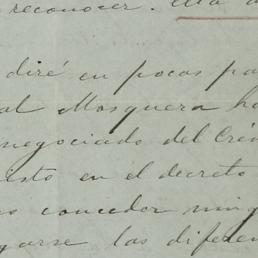 reconocer.
diré en pocas pa
al Mosquera ha
negociado del Cré
isto en el decreto
conceder ning
garse las diferen